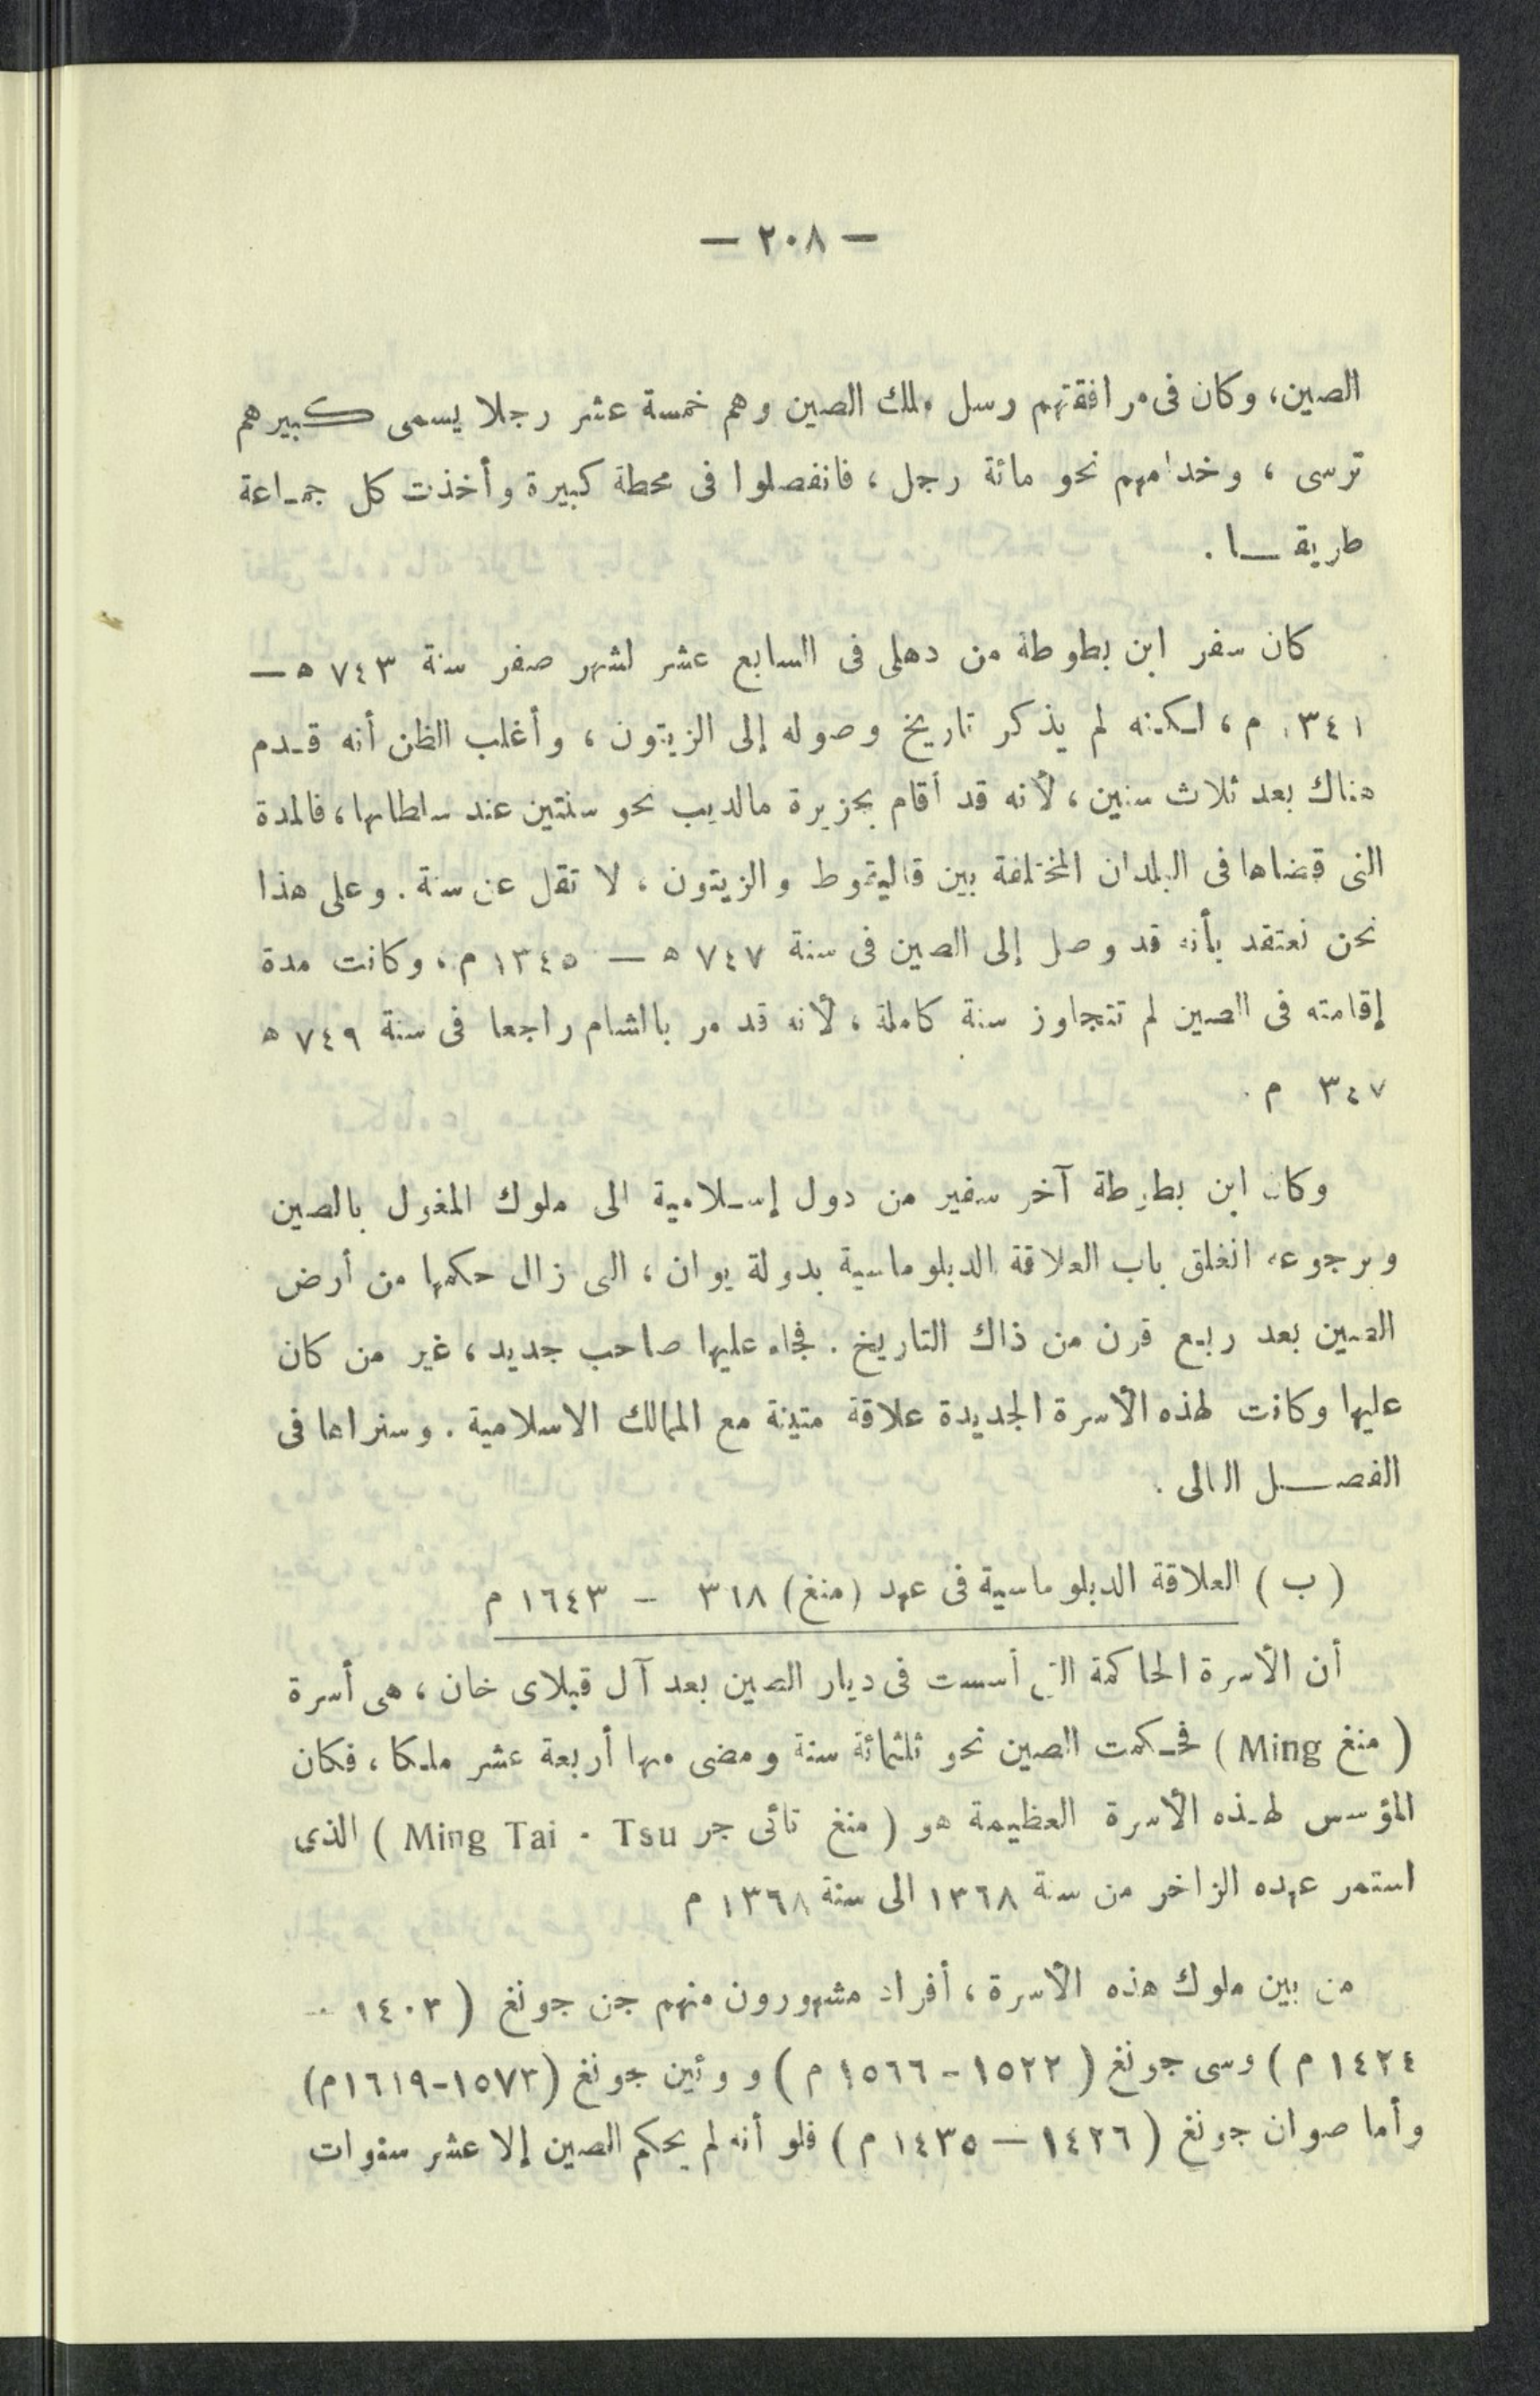 — ٢٠٨ —
الصين، وكان فى مرافقتهم رسل ملك الصين وهم خمسة عشر رجلا يسمى كبيرهم
ترسى ، وخدامهم نحو مائة رجل ، فانفصلوا فى محطة كبيرة وأخذت كل جماعة
طريقا .
كان سفر ابن بطوطة من دهلى فى السابع عشر لشهر صفر سنة ٧٤٣ ه —
١٣٤١ م ، لكنه لم يذكر تاريخ وصوله إلى الزيتون ، وأغلب الظن أنه قدم
هناك بعد ثلاث سنين ، لأنه قد أقام بجزيرة مالديب نحو سنتين عند سلطانها ، فالمدة
التى قضاها فى البلدان المختلفة بين قاليقوط والزيتون ، لا تقل عن سنة . وعلى هذا
نحن نعتقد بأنه قد وصل إلى الصين فى سنة ٧٤٧ ه — ١٣٤٥ م ، وكانت مدة
إقامته فى الصين لم تتجاوز سنة كاملة ، لأنه قد مر بالشام راجعا فى سنة ٧٤٩ ه
٣٤٧ م .
وكان ابن بطوطة آخر سفير من دول إسلامية الى ملوك المغول بالصين
وبرجوعه انغلق باب العلاقة الدبلوماسية بدولة يوان ، الى زال حكمها من أرض
الصين بعد ربع قرن من ذاك التاريخ . فجاء عليها صاحب جديد ، غير من كان
عليها وكانت لهذه الأسرة الجديدة علاقة متينة مع الممالك الاسلامية . وسنراها فى
الفصل التالى .
( ب ) العلاقة الدبلوماسية فى عهد ( منغ ) ٣٦٨ - ١٦٤٣ م
أن الأسرة الحاكمة التى أسست فى ديار الصين بعد آل قبلاى خان ، هى أسرة
( منغ Ming ) فحكمت الصين نحو ثلثمائة سنة ومضى منها أربعة عشر ملكا ، فكان
المؤسس لهذه الأسرة العظيمة هو ( منغ تائى جر Ming Tai - Tsu ) الذى
استمر عهده الزاخر من سنة ١٣٦٨ الى سنة ١٣٦٨ م
من بين ملوك هذه الأسرة ، أفراد مشهورون منهم جن جونغ ( ١٤٠٣ -
١٤٢٤ م ) وسى جونغ ( ١٥٢٢ - ١٥٦٦ م ) و وئين جونغ (١٥٧٣-١٦١٩م)
وأما صوان جونغ ( ١٤٢٦ — ١٤٣٥ م ) فلو أنه لم يحكم الصين إلا عشر سنوات